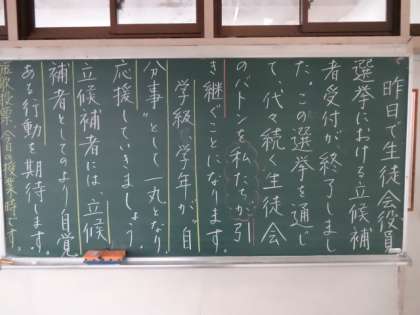 昨日で生徒会役員
選挙における立候補
者受付が終了しまし
た。この選挙を通じ
て、代々続く生徒会
のバトンを私たちが引
き継ぐことになります。
学級、学年が“自
分事”として一丸となり、
応援していきましょう。
立候補者には、立候
補者としてのより自覚
ある行動を期待します。